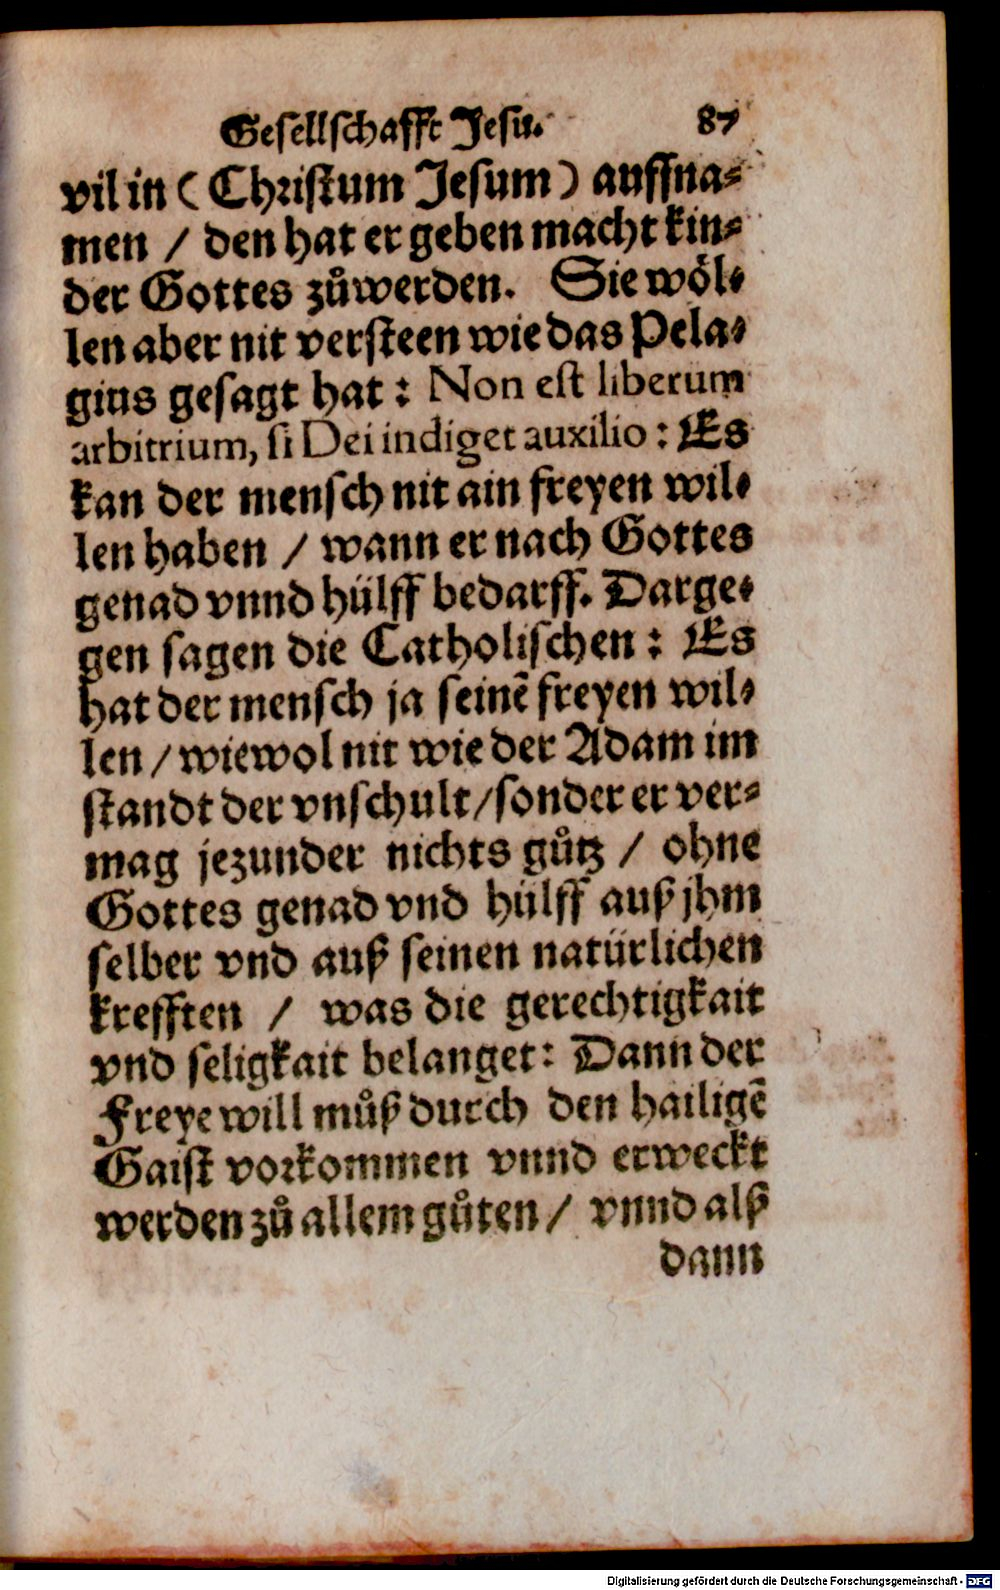 Gesellschafft Jesu. 87
vil in (Christum Jesum) auffna-
men / den hat er geben macht kin-
der Gottes zůwerden. Sie wöl-
len aber nit versteen wie das Pela-
gius gesagt hat: Non est liberum
arbitrium, si Dei indiget auxilio: Es
kan der mensch nit ain freyen wil-
len haben / wann er nach Gottes
genad vnnd hülff bedarff. Darge-
gen sagen die Catholischen: Es
hat der mensch ja seinẽ freyen wil-
len / wiewol nit wie der Adam im
standt der vnschult / sonder er ver-
mag jezunder nichts gůtz / ohne
Gottes genad vnd hülff auß jhm
selber vnd auß seinen natürlichen
krefften / was die gerechtigkait
vnd seligkait belanget: Dann der
Freye will můß durch den hailigẽ
Gaist vorkommen vnnd erweckt
werden zů allem gůten / vnnd alß
dann
Digitalisierung gefördert durch die Deutsche Forschungsgemeinschaft - DFG